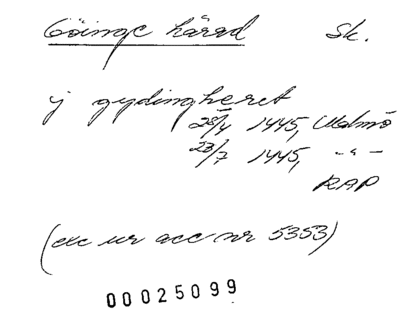 Göinge härad Sk.
j gydingheret
28/4 1445, Malmö
23/7 1445, -"-
RAP
(exc ur acc nr 5353)
00025099